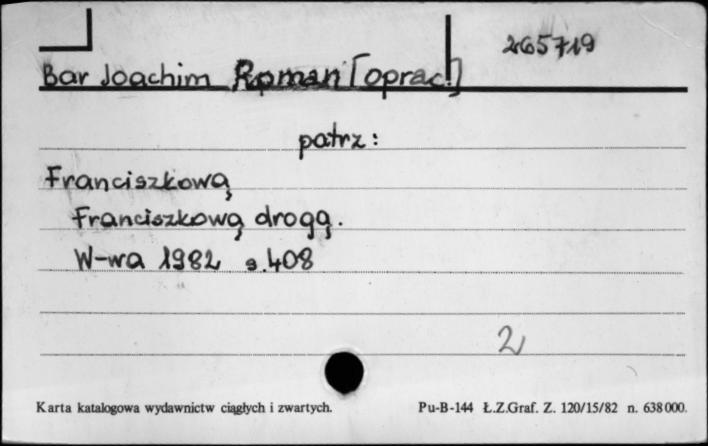 265719
Bar Joachim Roman [oprac.]
patrz:
Franciszkową
Franciszkową drogą.
W-wa 1982 s. 408
2
Karta katalogowa wydawnictw ciągłych i zwartych. Pu-B-144 Ł.Z.Graf. Z. 120/15/82 n. 638000.